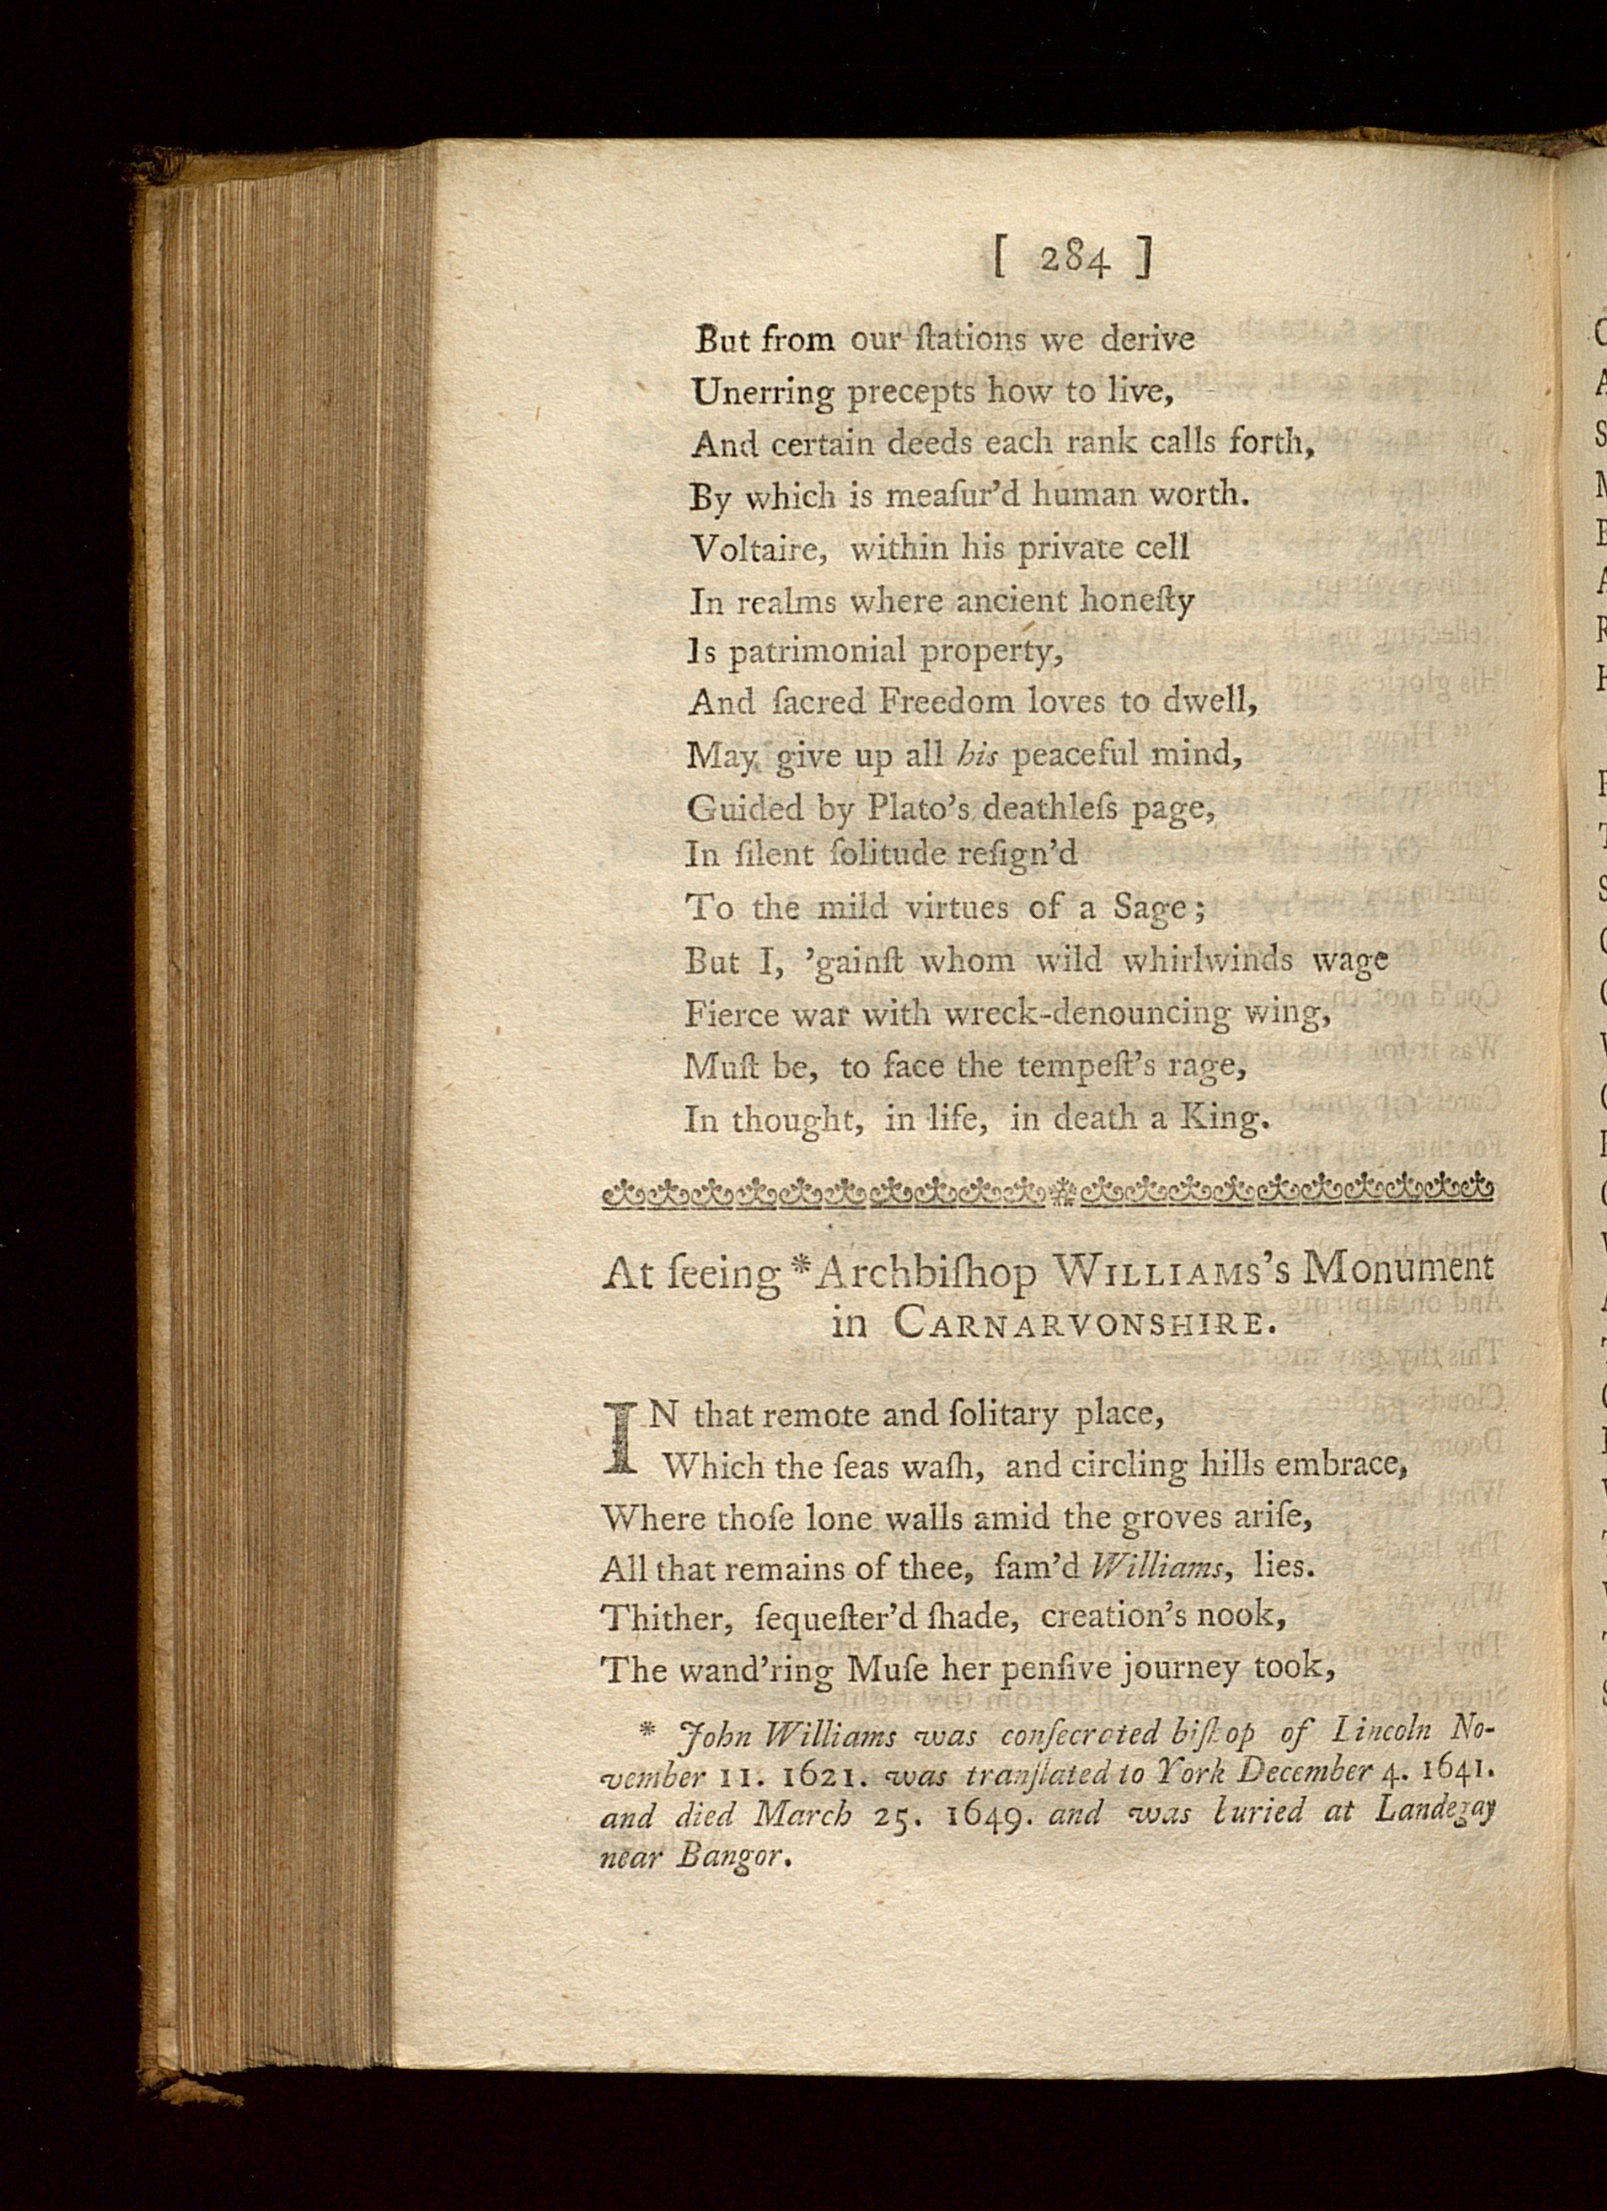 [ 284 ]
But from our ſtations we derive
Unerring precepts how to live,
And certain deeds each rank calls forth,
By which is meaſur’d human worth.
Voltaire, within his private cell
In realms where ancient honeſty
Is patrimonial property,
And ſacred Freedom loves to dwell,
May give up all his peaceful mind,
Guided by Plato’s deathleſs page,
In ſilent ſolitude reſign’d
To the mild virtues of a Sage;
But I, ’gainſt whom wild whirlwinds wage
Fierce war with wreck-denouncing wing,
Muſt be, to face the tempeſt’s rage,
In thought, in life, in death a King.
At ſeeing *Archbiſhop WILLIAMS’s Monument
in CARNARVONSHIRE.
IN that remote and ſolitary place,
Which the ſeas waſh, and circling hills embrace,
Where thoſe lone walls amid the groves ariſe,
All that remains of thee, fam’d Williams, lies.
Thither, ſequeſter’d ſhade, creation’s nook,
The wand’ring Muſe her penſive journey took,
* John Williams was conſecrated biſhop of Lincoln No-
vember 11. 1621. was tranſlated to York December 4. 1641.
and died March 25. 1649. and was buried at Landegay
near Bangor.